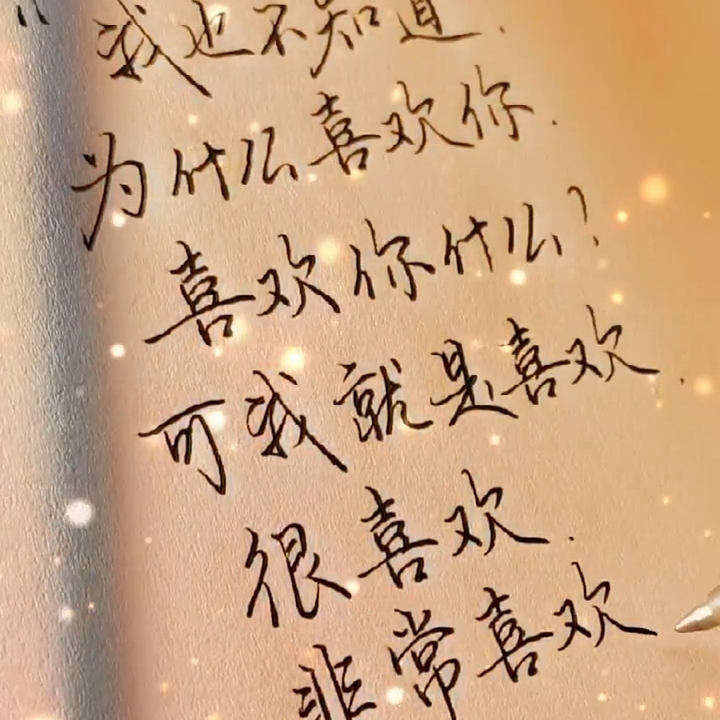 “我也不知道.
为什么喜欢你.
喜欢你什么?
可我就是喜欢.
很喜欢.
非常喜欢